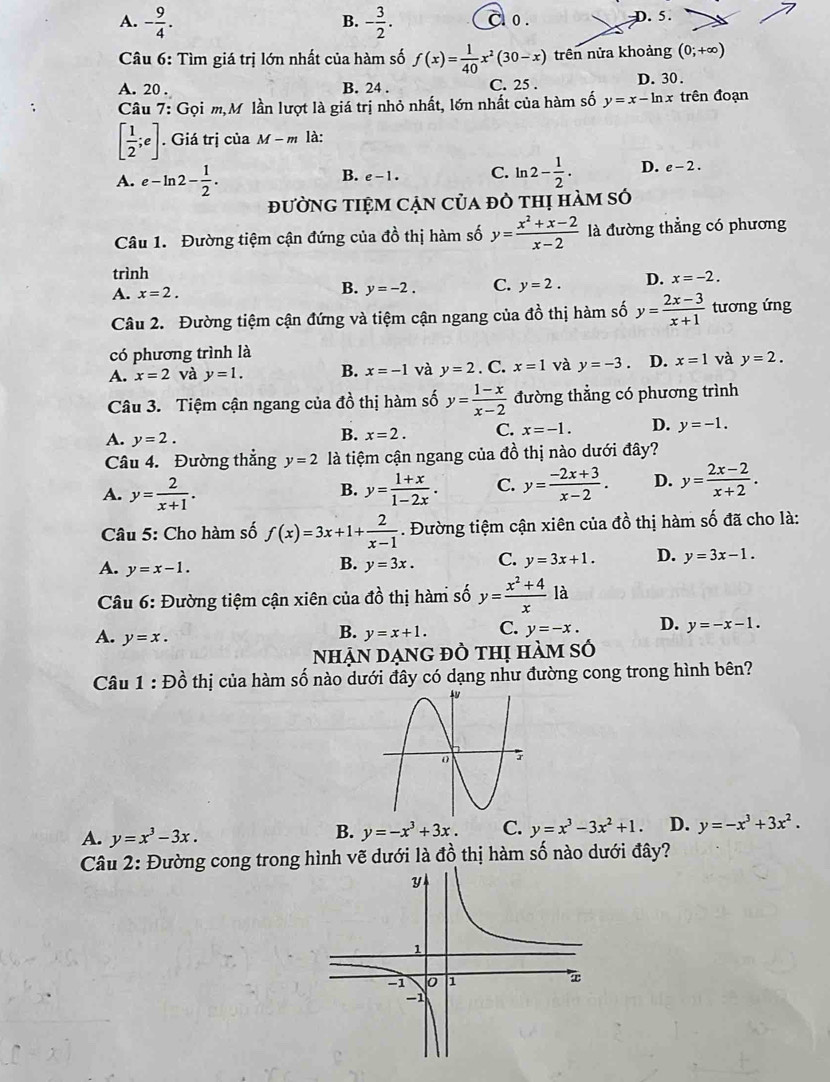 A. $-\frac{9}{4}$. B. $-\frac{3}{2}$. C. 0 . D. 5 .
Câu 6: Tìm giá trị lớn nhất của hàm số $f(x)=\frac{1}{40}x^2(30-x)$ trên nửa khoảng $(0;+\infty)$
A. 20 . B. 24 . C. 25 . D. 30 .
Câu 7: Gọi m,M lần lượt là giá trị nhỏ nhất, lớn nhất của hàm số $y=x-\ln x$ trên đoạn
$\left[\frac{1}{2};e\right]$. Giá trị của $M-m$ là:
A. $e-\ln 2-\frac{1}{2}$. B. $e-1$. C. $\ln 2-\frac{1}{2}$. D. $e-2$.
ĐƯỜNG TIỆM CẬN CỦA ĐỒ THỊ HÀM SỐ
Câu 1. Đường tiệm cận đứng của đồ thị hàm số $y=\frac{x^2+x-2}{x-2}$ là đường thẳng có phương
trình
A. $x=2$. B. $y=-2$. C. $y=2$. D. $x=-2$.
Câu 2. Đường tiệm cận đứng và tiệm cận ngang của đồ thị hàm số $y=\frac{2x-3}{x+1}$ tương ứng
có phương trình là
A. $x=2$ và $y=1$. B. $x=-1$ và $y=2$. C. $x=1$ và $y=-3$. D. $x=1$ và $y=2$.
Câu 3. Tiệm cận ngang của đồ thị hàm số $y=\frac{1-x}{x-2}$ đường thẳng có phương trình
A. $y=2$. B. $x=2$. C. $x=-1$. D. $y=-1$.
Câu 4. Đường thẳng $y=2$ là tiệm cận ngang của đồ thị nào dưới đây?
A. $y=\frac{2}{x+1}$. B. $y=\frac{1+x}{1-2x}$. C. $y=\frac{-2x+3}{x-2}$. D. $y=\frac{2x-2}{x+2}$.
Câu 5: Cho hàm số $f(x)=3x+1+\frac{2}{x-1}$. Đường tiệm cận xiên của đồ thị hàm số đã cho là:
A. $y=x-1$. B. $y=3x$. C. $y=3x+1$. D. $y=3x-1$.
Câu 6: Đường tiệm cận xiên của đồ thị hàm số $y=\frac{x^2+4}{x}$ là
A. $y=x$. B. $y=x+1$. C. $y=-x$. D. $y=-x-1$.
NHẬN DẠNG ĐỒ THỊ HÀM SỐ
Câu 1 : Đồ thị của hàm số nào dưới đây có dạng như đường cong trong hình bên?
y
O x
A. $y=x^3-3x$. B. $y=-x^3+3x$. C. $y=x^3-3x^2+1$. D. $y=-x^3+3x^2$.
Câu 2: Đường cong trong hình vẽ dưới là đồ thị hàm số nào dưới đây?
y
1
-1 O 1 x
-1